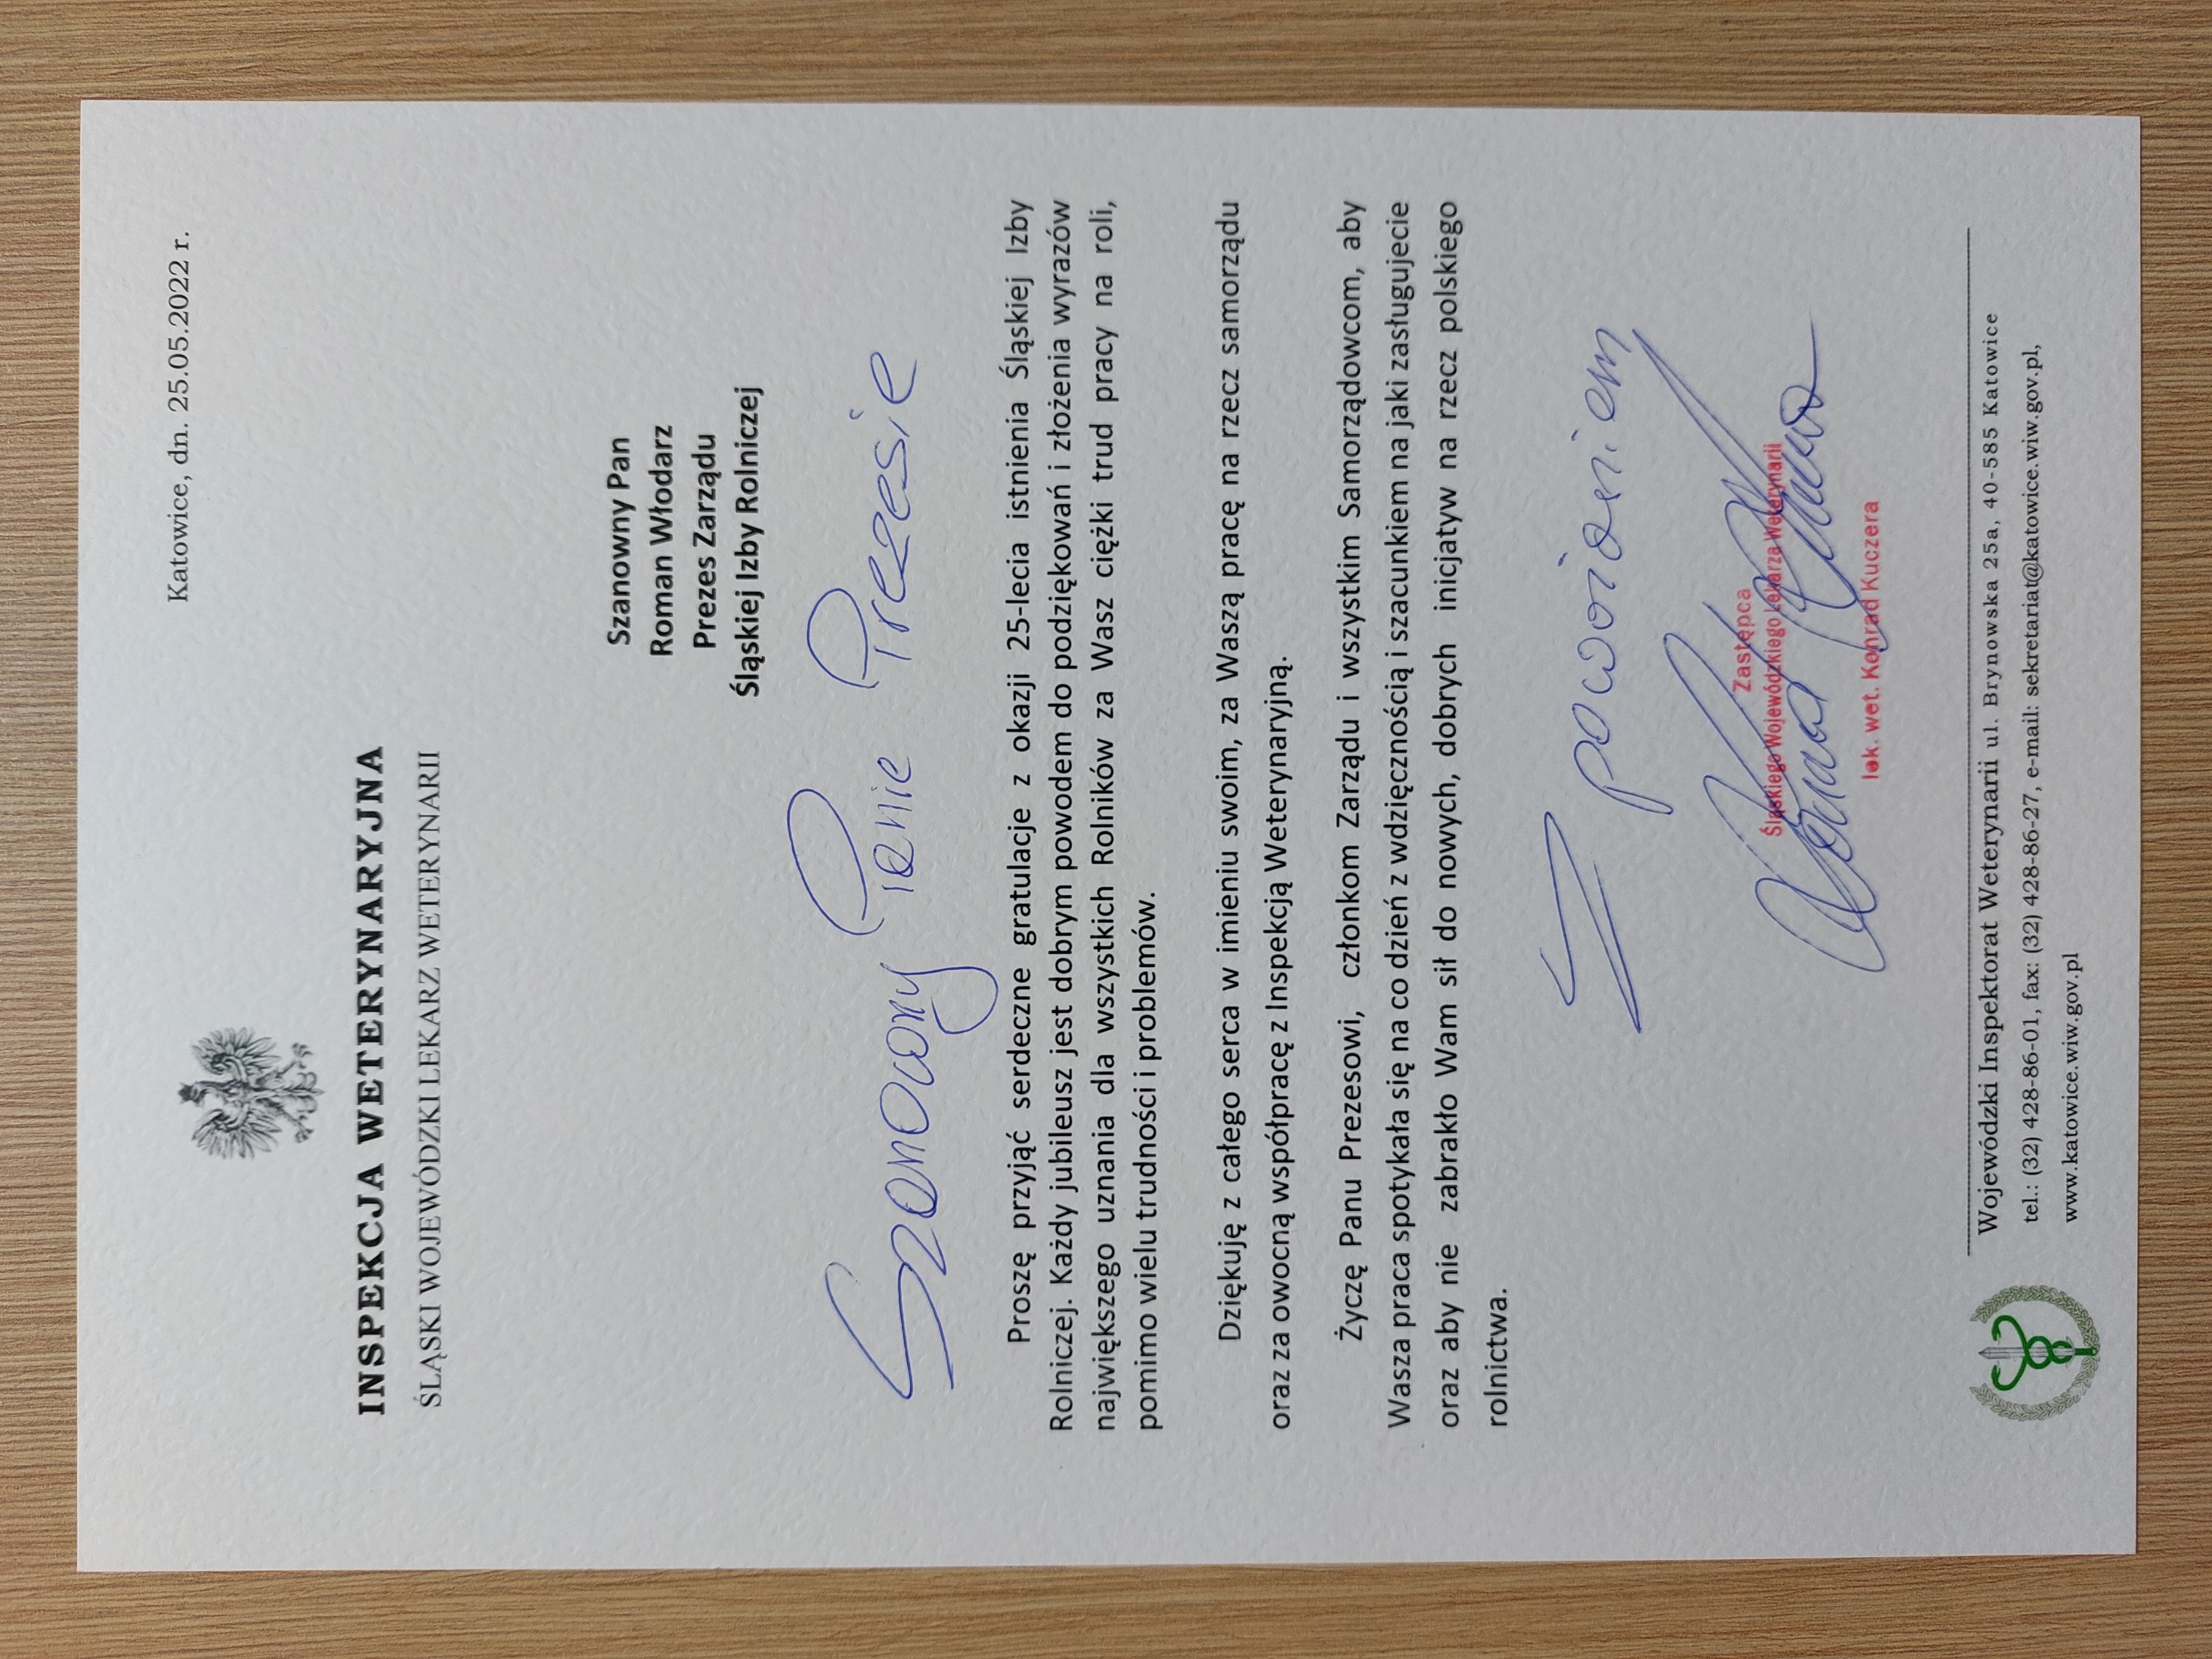 Katowice, dn. 25.05.2022 r.
INSPEKCJA WETERYNARYJNA
ŚLĄSKI WOJEWÓDZKI LEKARZ WETERYNARII
Szanowny Pan
Roman Włodarz
Prezes Zarządu
Śląskiej Izby Rolniczej
Szanowny Panie Prezesie
Proszę przyjąć serdeczne gratulacje z okazji 25-lecia istnienia Śląskiej Izby
Rolniczej. Każdy jubileusz jest dobrym powodem do podziękowań i złożenia wyrazów
największego uznania dla wszystkich Rolników za Wasz ciężki trud pracy na roli,
pomimo wielu trudności i problemów.
Dziękuję z całego serca w imieniu swoim, za Waszą pracę na rzecz samorządu
oraz za owocną współpracę z Inspekcją Weterynaryjną.
Życzę Panu Prezesowi, członkom Zarządu i wszystkim Samorządowcom, aby
Wasza praca spotykała się na co dzień z wdzięcznością i szacunkiem na jaki zasługujecie
oraz aby nie zabrakło Wam sił do nowych, dobrych inicjatyw na rzecz polskiego
rolnictwa.
Z poważaniem
Zastępca
Śląskiego Wojewódzkiego Lekarza Weterynarii
lek. wet. Konrad Kuczera
Wojewódzki Inspektorat Weterynarii ul. Brynowska 25a, 40-585 Katowice
tel.: (32) 428-86-01, fax: (32) 428-86-27, e-mail: sekretariat@katowice.wiw.gov.pl,
www.katowice.wiw.gov.pl